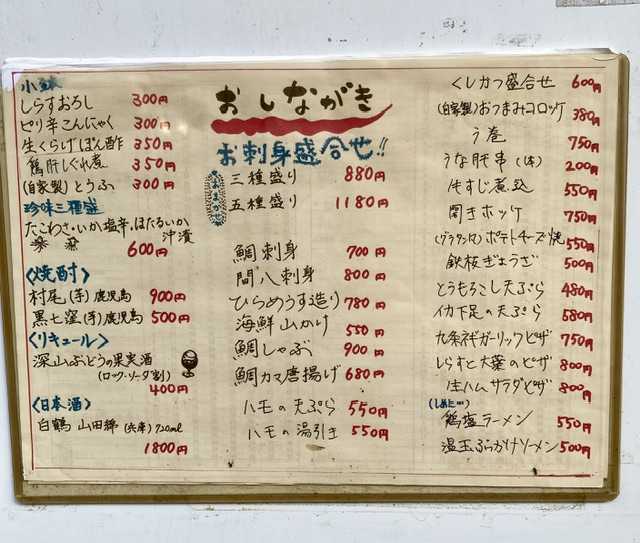 しらすおろし 300円
ピリ辛こんにゃく 300円
生くらげぽん酢 350円
鶏肝しぐれ煮 350円
(自家製)とうふ 300円
珍味三種盛
たこわさ・いか塩辛・ほたるいか
沖漬
600円
〈焼酎〉
村尾(芋)鹿児島 900円
黒七窪(芋)鹿児島 500円
〈リキュール〉
深山ぶどうの果実酒
(ロック・ソーダ割)
400円
〈日本酒〉
白鶴 山田錦(兵庫)720ml
1800円
おしながき
お刺身盛合せ!!
おまかせ
三種盛り 880円
五種盛り 1180円
鯛刺身 700円
間八刺身 800円
ひらめうす造り 780円
海鮮山かけ 550円
鯛しゃぶ 900円
鯛カマ唐揚げ 680円
ハモの天ぷら 550円
ハモの湯引き 550円
くしかつ盛合せ 600円
(自家製)おつまみコロッケ 380円
う巻 750円
うな肝串(1本) 200円
牛すじ煮込 550円
開きホッケ 750円
(グラタン風)ポテトチーズ焼 550円
鉄板ぎょうざ 500円
とうもろこし天ぷら 480円
イカ下足の天ぷら 580円
九条ネギガーリックピザ 750円
しらすと大葉のピザ 800円
生ハムサラダピザ 800円
(しめに…)
鶏塩ラーメン 550円
温玉ぶっかけソーメン 500円